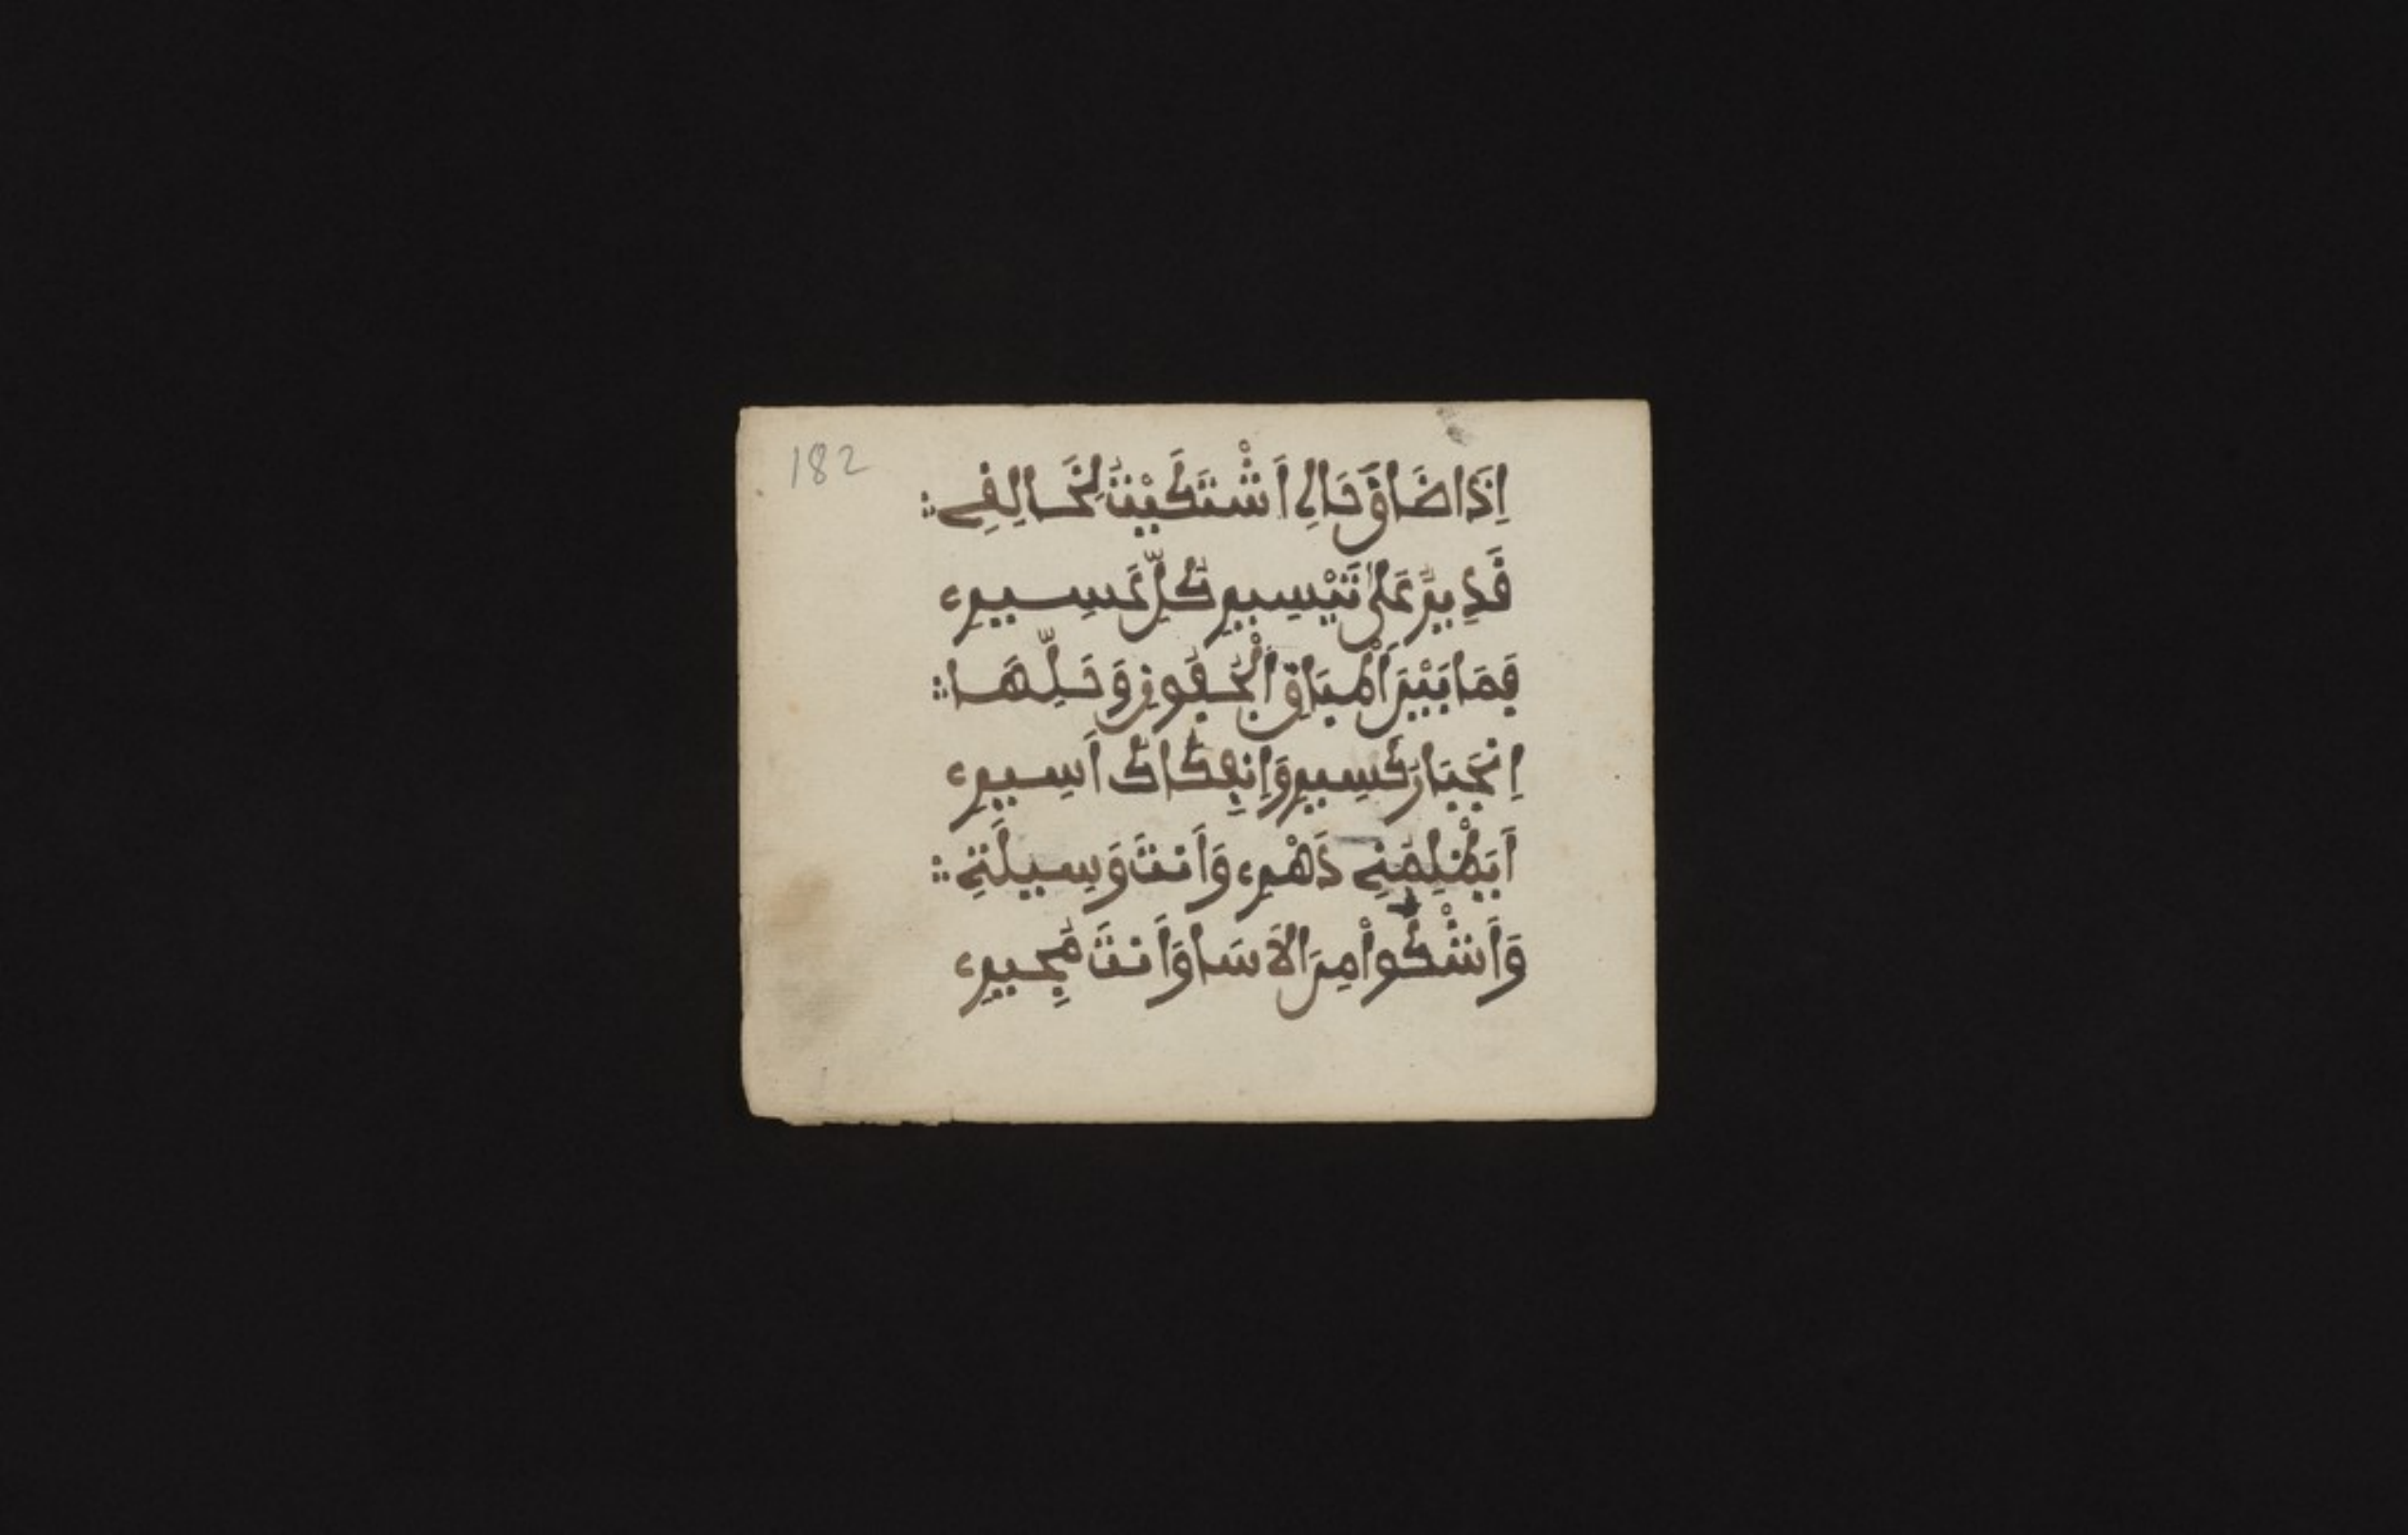 182
اِذَا ضَاقَ حَالِے اَشْتَكَيْتُ لِخَالِفِے
قَدِيرٌ عَلَىٰ تَيْسِيرِ كُلِّ عَسِيرِے
فَمَا بَيْنَ اَطْبَاقِ الْجُفُونِ وَحَلِّهَا
اِنْجِبَارُ كَسِيرِ وَاِنفِكَاكُ اَسِيرِے
اَيَظْلِمُنِے دَهْرِے وَاَنتَ وَسِيلَتِے
وَاَشْكُواْ مِنَ الاَسَا وَاَنتَ مُجِيرِے